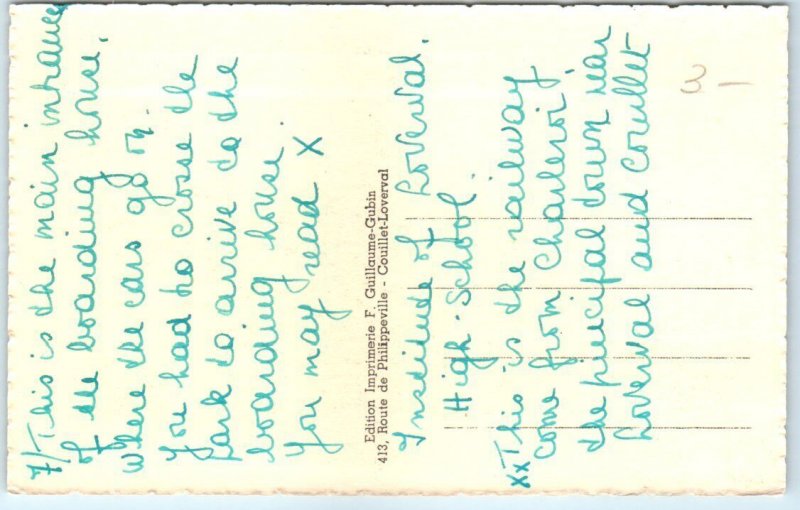 7/ This is the main intrance
of the boarding house.
Where the cars go in.
You had to crosse the
park to arrive to the
boarding house.
You may read X
Edition Imprimerie F. Guillaume-Gubin
413, Route de Philippeville - Couillet-Loverval
Institude of Loverval.
High-School.
xx This is the railway
come from Charleroi,
the principal town near
Loverval and Couillet
3 -